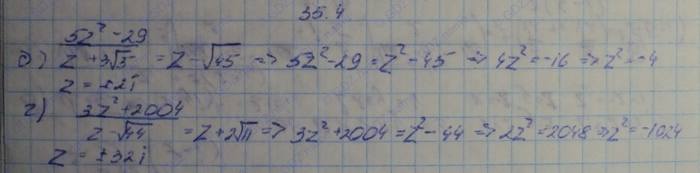 35.4
д) (5z² - 29)/(z + 3√5) = z - √45 => 5z² - 29 = z² - 45 => 4z² = -16 => z² = -4
z = ±2i
г) (3z² + 2004)/(z - √44) = z + 2√11 => 3z² + 2004 = z² - 44 => 2z² = 2048 => z² = -1024
z = ±32i